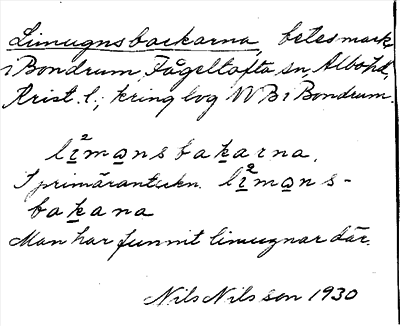 Limugnsbackarna, betesmark
i Bondrum, Fågeltofta sn, Albo hd,
Krist. l.; kring bog NV B i Bondrum.
lim̱ɑ̱nsbaḵarna.
I primäranteckn. limɑns-
baḵana
Man har funnit limugnar där.
Nils Nilsson 1930